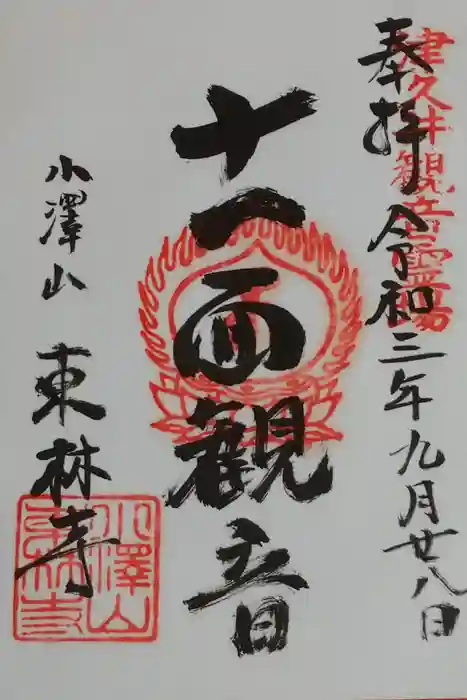 奉拝 令和三年九月廿八日
津久井観音霊場
十一面観音
小澤山
東林寺
小澤山
東林寺